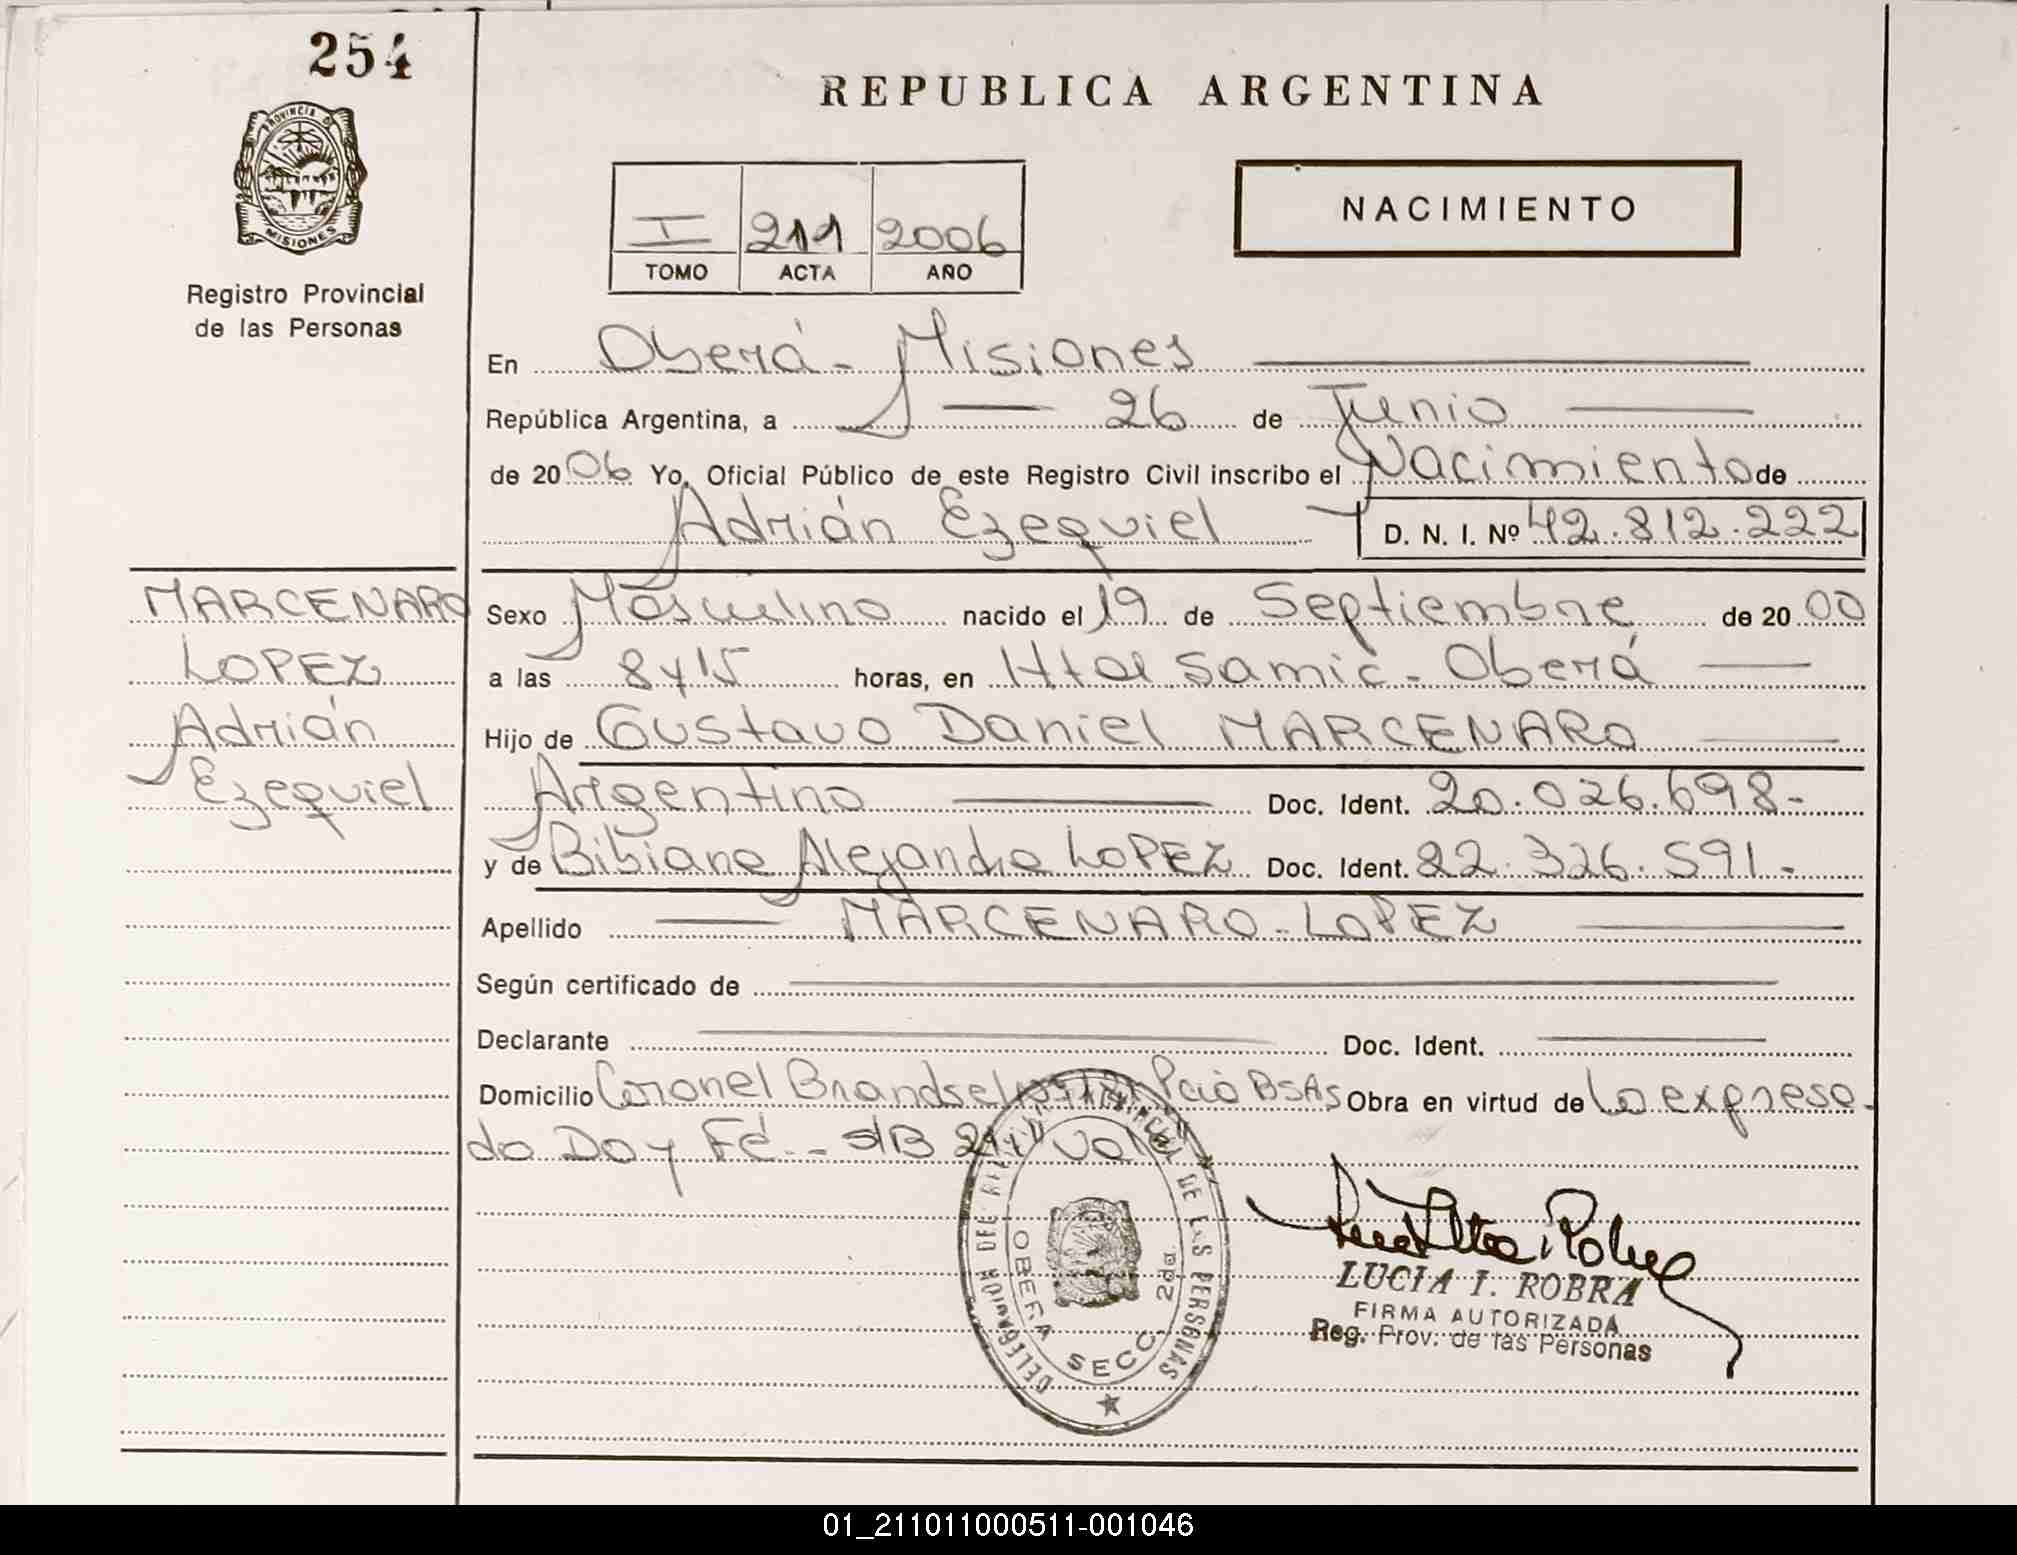 254
REPUBLICA ARGENTINA
PROVINCIA D
MISIONES
Registro Provincial
de las Personas
I 211 2006
TOMO ACTA AÑO
NACIMIENTO
En Oberá - Misiones
República Argentina, a 26 de Junio
de 2006 Yo, Oficial Público de este Registro Civil inscribo el Nacimiento de
Adrián Ezequiel D. N. I. Nº 42.812.222
MARCENARO
LOPEZ
Adrián
Ezequiel
Sexo Masculino nacido el 19 de Septiembre de 2000
a las 8 y 15 horas, en Htal Samic - Oberá
Hijo de Gustavo Daniel MARCENARO
Argentino Doc. Ident. 20.026.698-
y de Bibiana Alejandra LOPEZ Doc. Ident. 22.326.591.-
Apellido MARCENARO - LOPEZ
Según certificado de
Declarante Doc. Ident.
Domicilio Coronel Pcia BsAs Obra en virtud de lo expresa-
do Doy Fé.- S/B vale
DELEGACION DE LAS PERSONAS
OBERA SECC. 2da.
LUCIA I. ROBRA
FIRMA AUTORIZADA
Reg. Prov. de las Personas
01_211011000511-001046